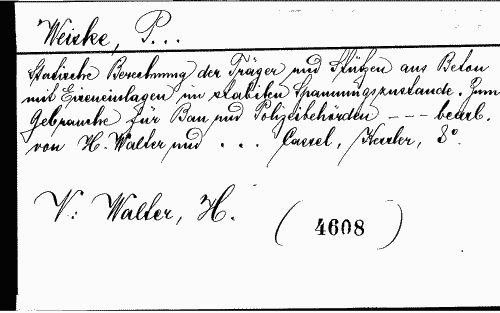 Weiske, P...
Statische Berechnung der Träger und Stützen aus Beton
mit Eiseneinlagen im stabilen Spannungszustande. Zum
Gebrauche für Bau und Polizeibehörden --- bearb.
von H. Walter und ... Cassel, Kessler, 8°.
V: Walter, H.
(4608)